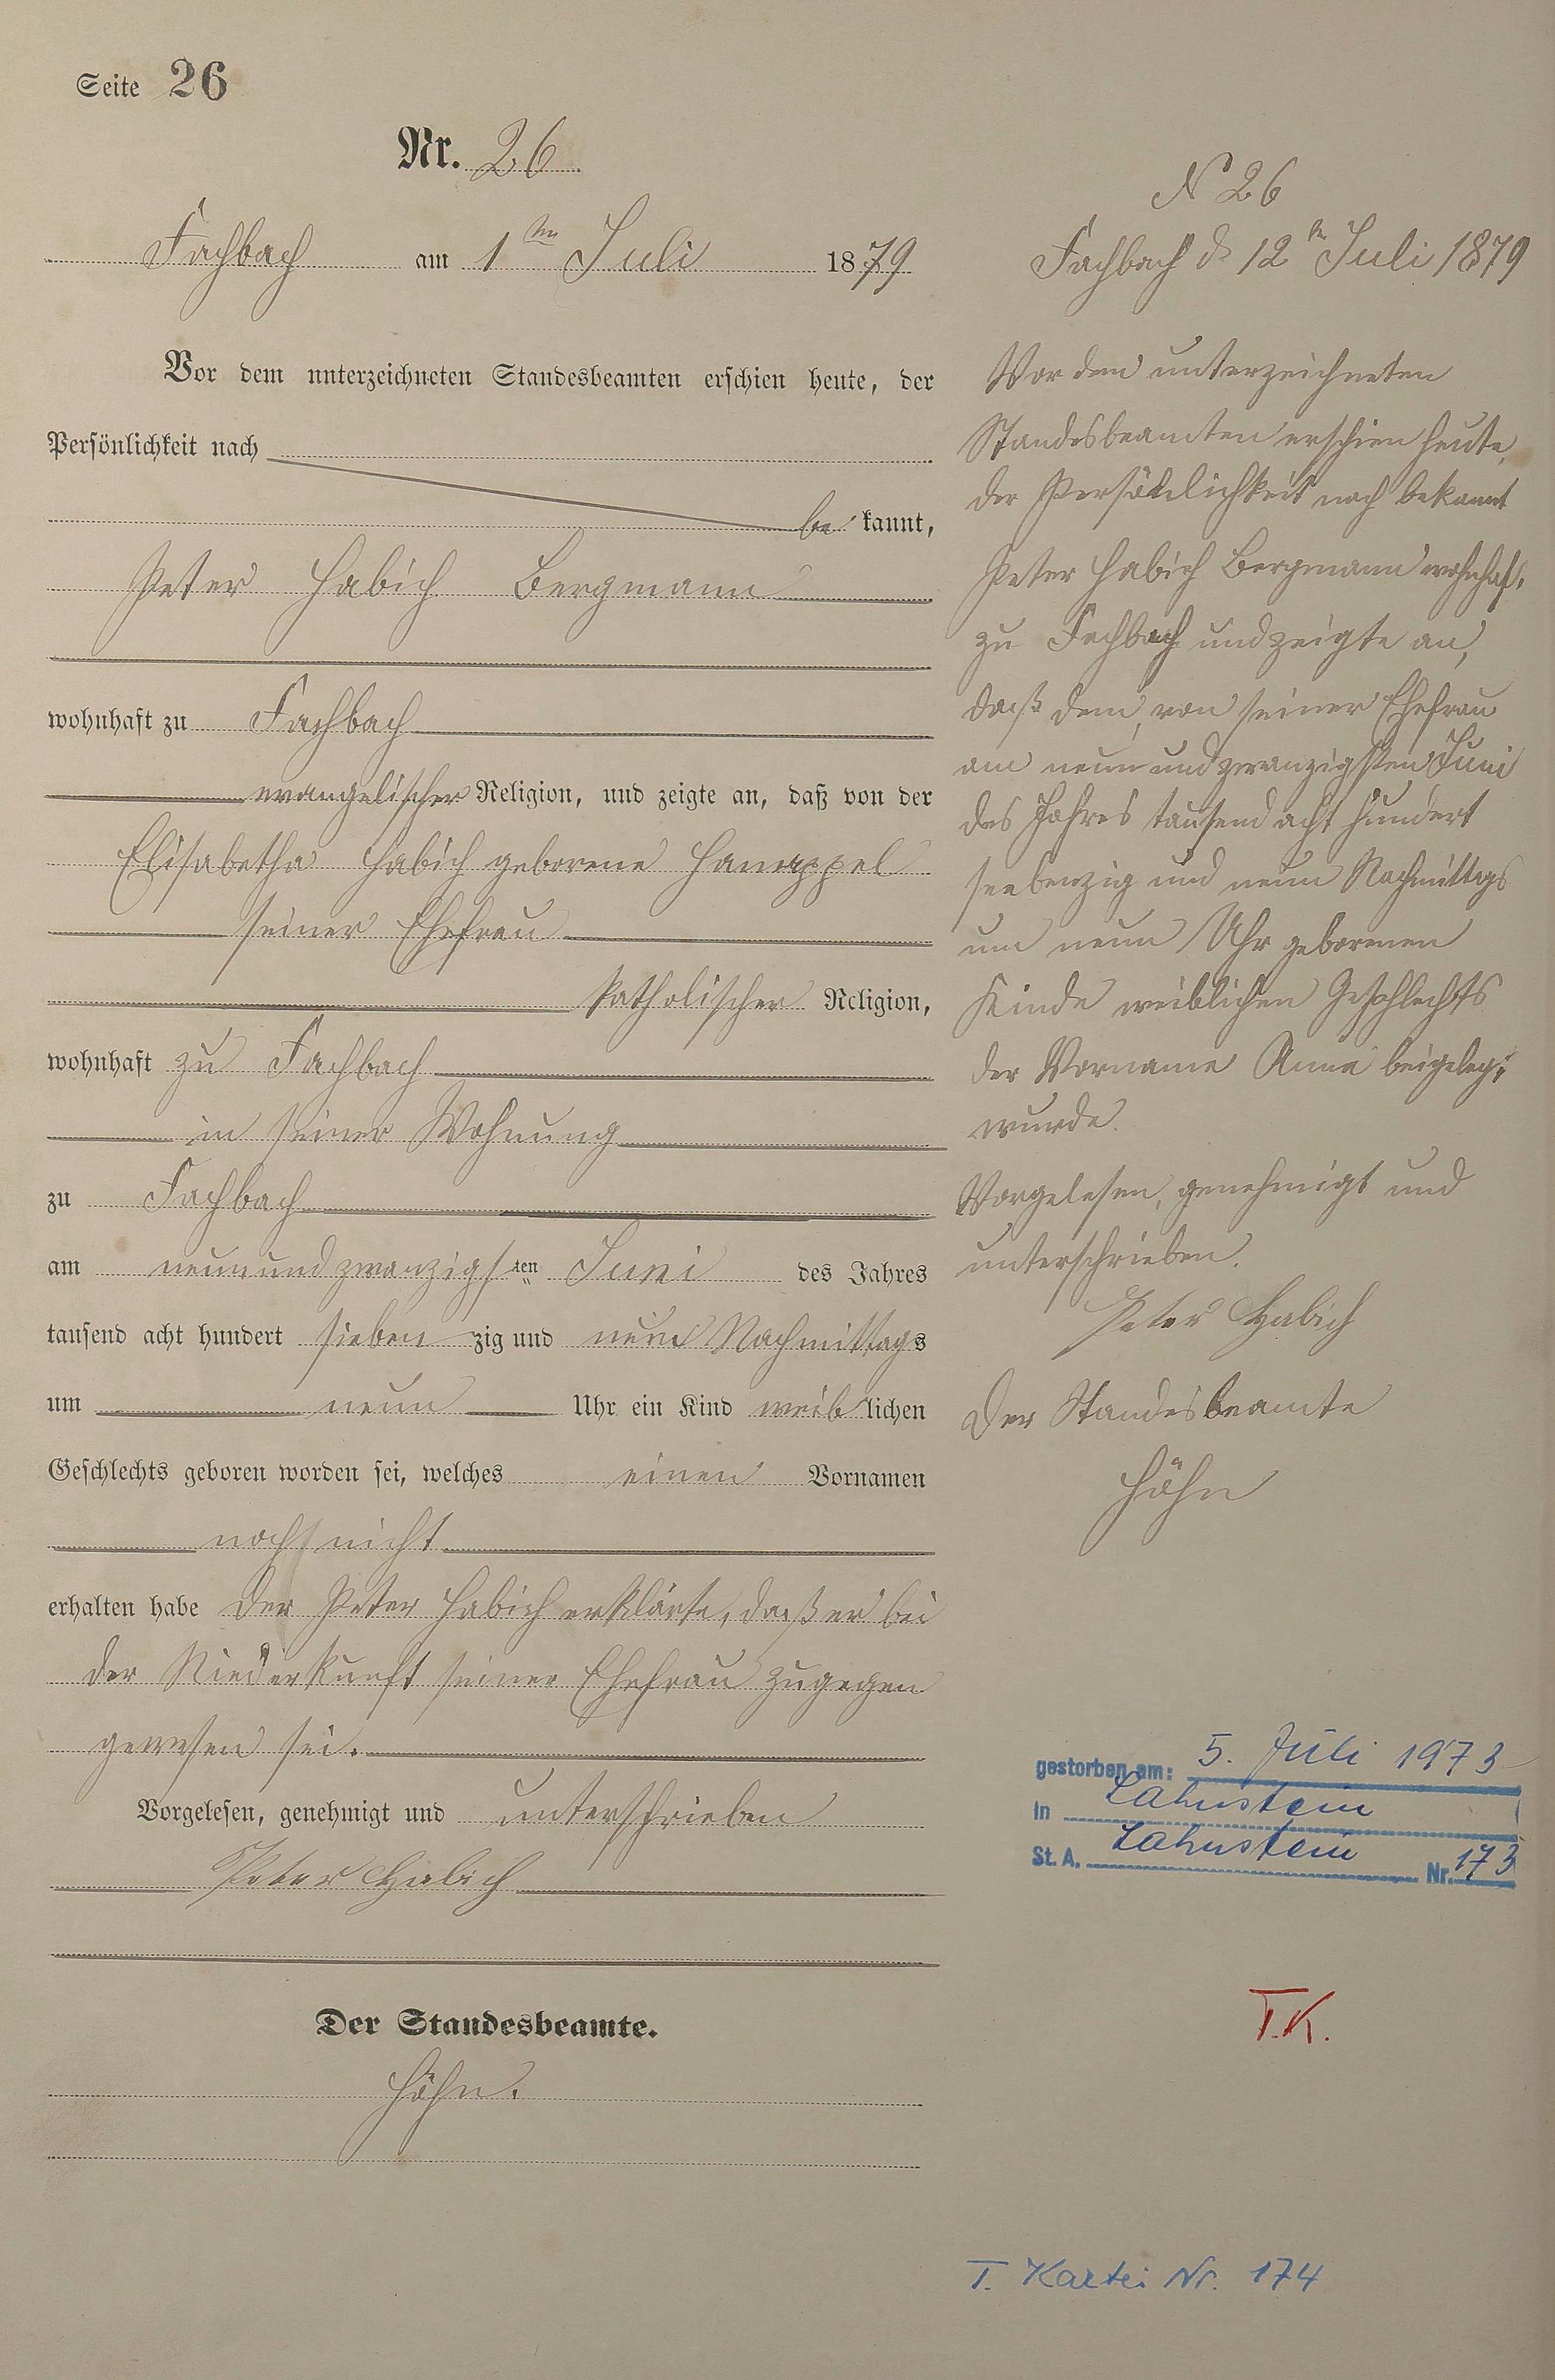 Seite 26
Nr. 26
Fachbach am 1ten Juli 1879
Vor dem unterzeichneten Standesbeamten erschien heute, der
Persönlichkeit nach
be kannt,
Peter Habich Bergmann
wohnhaft zu Fachbach
evangelischer Religion, und zeigte an, daß von der
Elisabetha Habich geborene Hanappel
seiner Ehefrau
katholischer Religion,
wohnhaft zu Fachbach
in seiner Wohnung
zu Fachbach
am neunundzwanzigsten Juni des Jahres
tausend acht hundert sieben zig und neun Nachmittags
um neun Uhr ein Kind weiblichen
Geschlechts geboren worden sei, welches einen Vornamen
noch nicht
erhalten habe Der Peter Habich erklärte, daß er bei
der Niederkunft seiner Ehefrau zugegen
gewesen sei.
Vorgelesen, genehmigt und unterschrieben
Peter Habich
Der Standesbeamte.
Höhn.
N 26
Fachbach d 12ten Juli 1879
Vor dem unterzeichneten
Standesbeamten erschien heute,
der Persönlichkeit nach bekannt
Peter Habich Bergmann wohnhaft
zu Fachbach und zeigte an,
daß dem, von seiner Ehefrau
am neunundzwanzigsten Juni
des Jahres tausend acht hundert
seebenzig und neun Nachmittags
um neun Uhr geborenen
Kinde weiblichen Geschlechts
der Vorname Anna beigelegt
wurde.
Vorgelesen, genehmigt und
unterschrieben.
Peter Habich
Der Standesbeamte
Höhn
gestorben am: 5. Juli 1973
in Lahnstein
St. A. Lahnstein Nr. 173
T.K.
T. Kartei Nr. 174